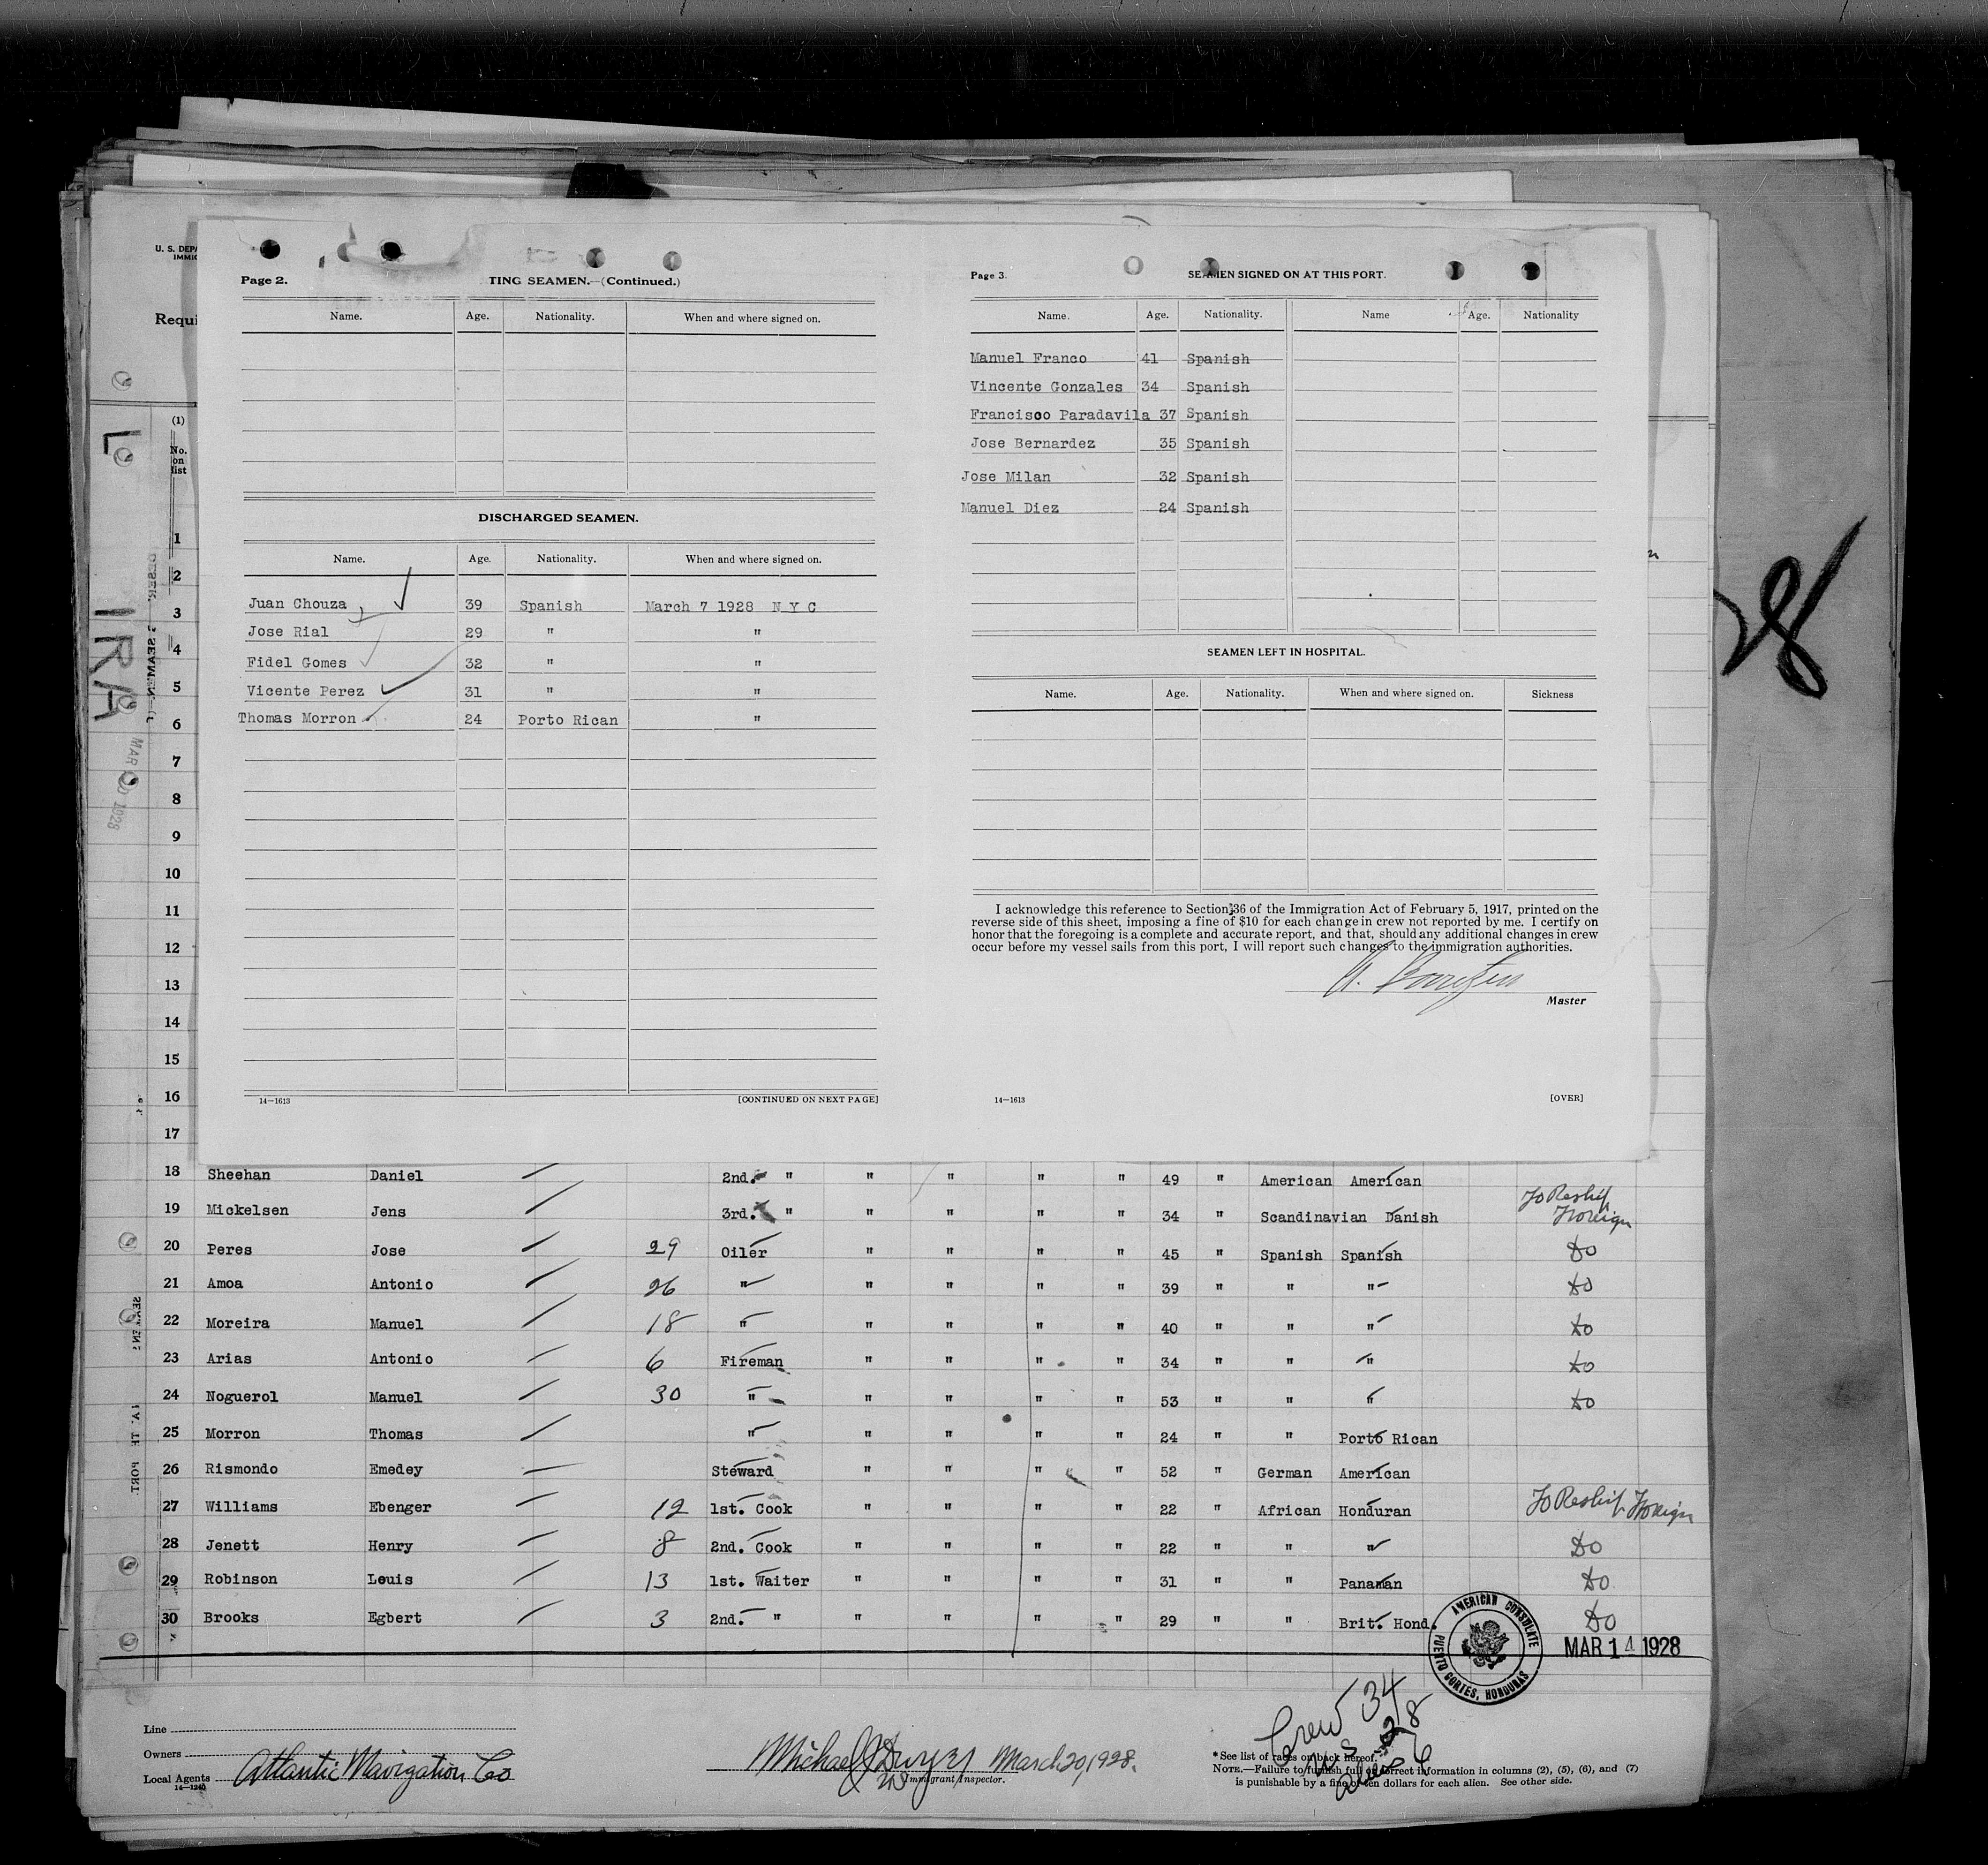 U. S. DEPA
IMMIG
Requi
Page 2.
TING SEAMEN.—(Continued.)
Name. Age. Nationality. When and where signed on.
DISCHARGED SEAMEN.
Name. Age. Nationality. When and where signed on.
Juan Chouza 39 Spanish March 7 1928 N Y C
Jose Rial 29 " "
Fidel Gomes 32 " "
Vicente Perez 31 " "
Thomas Morron 24 Porto Rican "
14—1613 [CONTINUED ON NEXT PAGE]
Page 3.
SEAMEN SIGNED ON AT THIS PORT.
Name. Age. Nationality. Name Age. Nationality
Manuel Franco 41 Spanish
Vincente Gonzales 34 Spanish
Francisco Paradavila 37 Spanish
Jose Bernardez 35 Spanish
Jose Milan 32 Spanish
Manuel Diez 24 Spanish
SEAMEN LEFT IN HOSPITAL.
Name. Age. Nationality. When and where signed on. Sickness
I acknowledge this reference to Section 36 of the Immigration Act of February 5, 1917, printed on the
reverse side of this sheet, imposing a fine of $10 for each change in crew not reported by me. I certify on
honor that the foregoing is a complete and accurate report, and that, should any additional changes in crew
occur before my vessel sails from this port, I will report such changes to the immigration authorities.
Master
14—1613 [OVER]
(1)
No.
on
list
1
2
3
4
5
6
7
8
9
10
11
12
13
14
15
16
17
18 Sheehan Daniel 2nd. " " " " " 49 " American American
19 Mickelsen Jens 3rd. " " " " " 34 " Scandinavian Danish To Reship Foreign
20 Peres Jose 29 Oiler " " " " 45 " Spanish Spanish Do
21 Amoa Antonio 26 " " " " " 39 " " " Do
22 Moreira Manuel 18 " " " " " 40 " " " Do
23 Arias Antonio 6 Fireman " " " " 34 " " " Do
24 Noguerol Manuel 30 " " " " " 53 " " " Do
25 Morron Thomas " " " " " 24 " " Porto Rican
26 Rismondo Emedey Steward " " " " 52 " German American
27 Williams Ebenger 12 1st. Cook " " " " 22 " African Honduran To Reship Foreign
28 Jenett Henry 8 2nd. Cook " " " " 22 " " " Do
29 Robinson Louis 13 1st. Waiter " " " " 31 " " Panaman Do
30 Brooks Egbert 3 2nd. " " " " " 29 " " Brit. Hond. Do
AMERICAN CONSULATE
PUERTO CORTES, HONDURAS
MAR 14 1928
Line
Owners
Local Agents Atlantic Navigation Co
14—1240
Michael J Dwyer March 20, 1928.
Immigrant Inspector.
Crew 34
*See list of races on back hereof.
NOTE.—Failure to furnish full or correct information in columns (2), (5), (6), and (7)
is punishable by a fine of ten dollars for each alien. See other side.
28